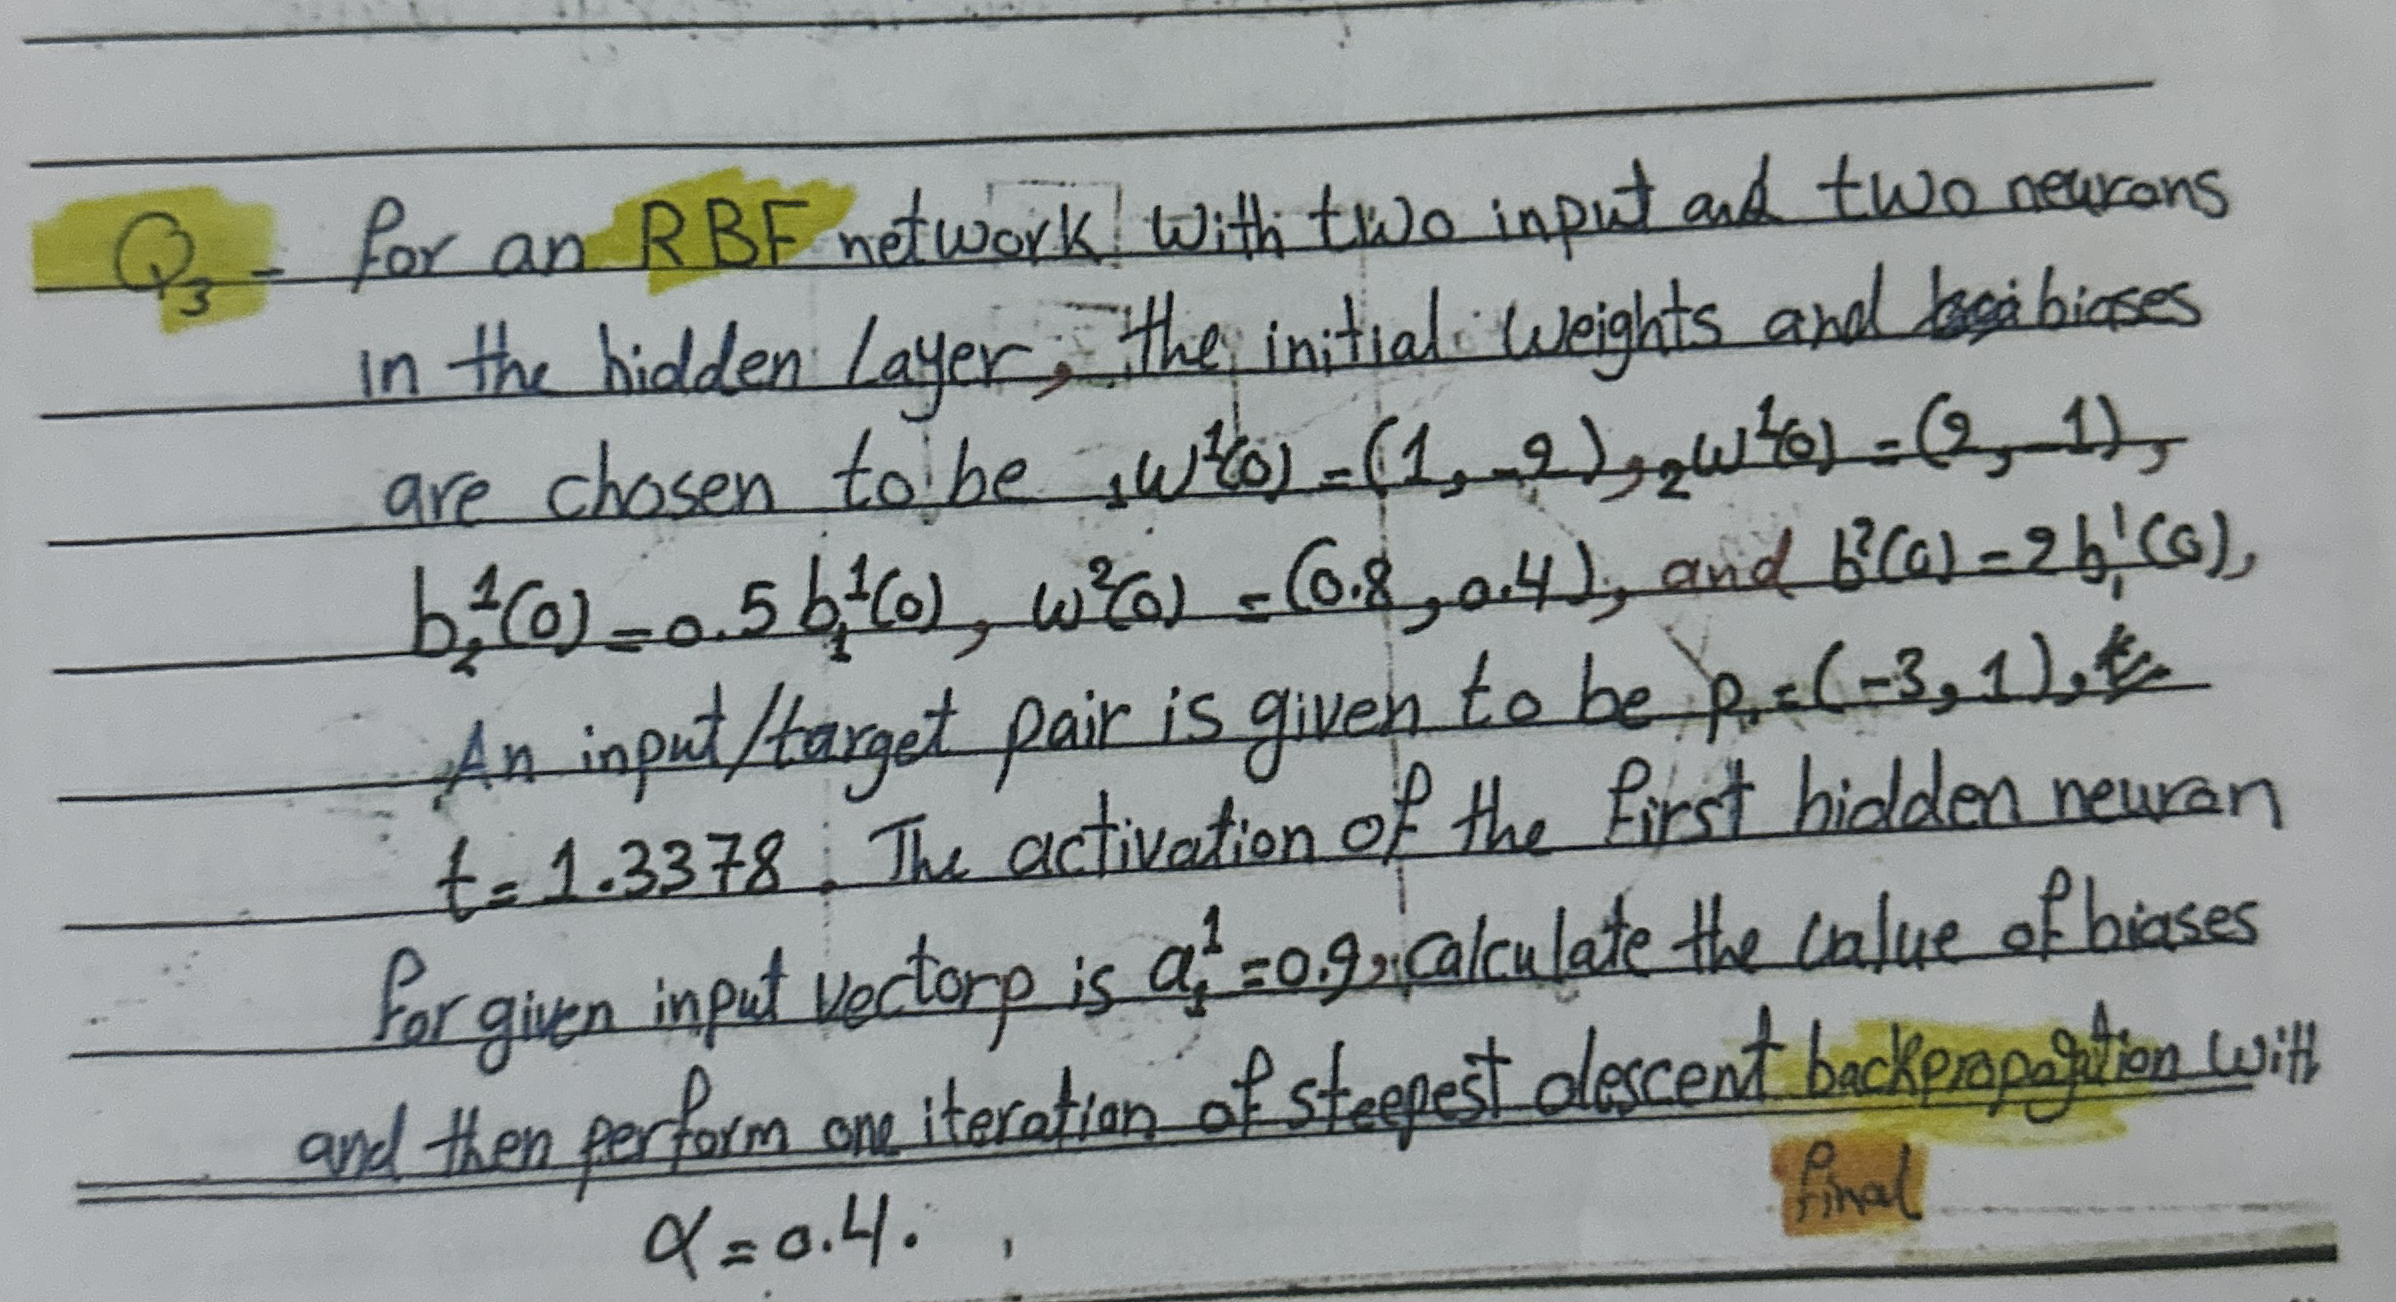 Q3- for an RBF network with two input and two neurons
in the hidden layer, the initial weights and biases
are chosen to be ₁w¹(0) = (1, -2), ₂w¹(0) = (2, -1),
b₂¹(0) = 0.5 b₁¹(0), w²(0) = (0.8, 0.4), and b²(0) = 2 b₁¹(0),
An input/target pair is given to be p = (-3, 1),
t = 1.3378. The activation of the first hidden neuron
for given input vector p is a₁¹ = 0.9, calculate the value of biases
and then perform one iteration of steepest descent backpropagation with
final
α = 0.4.